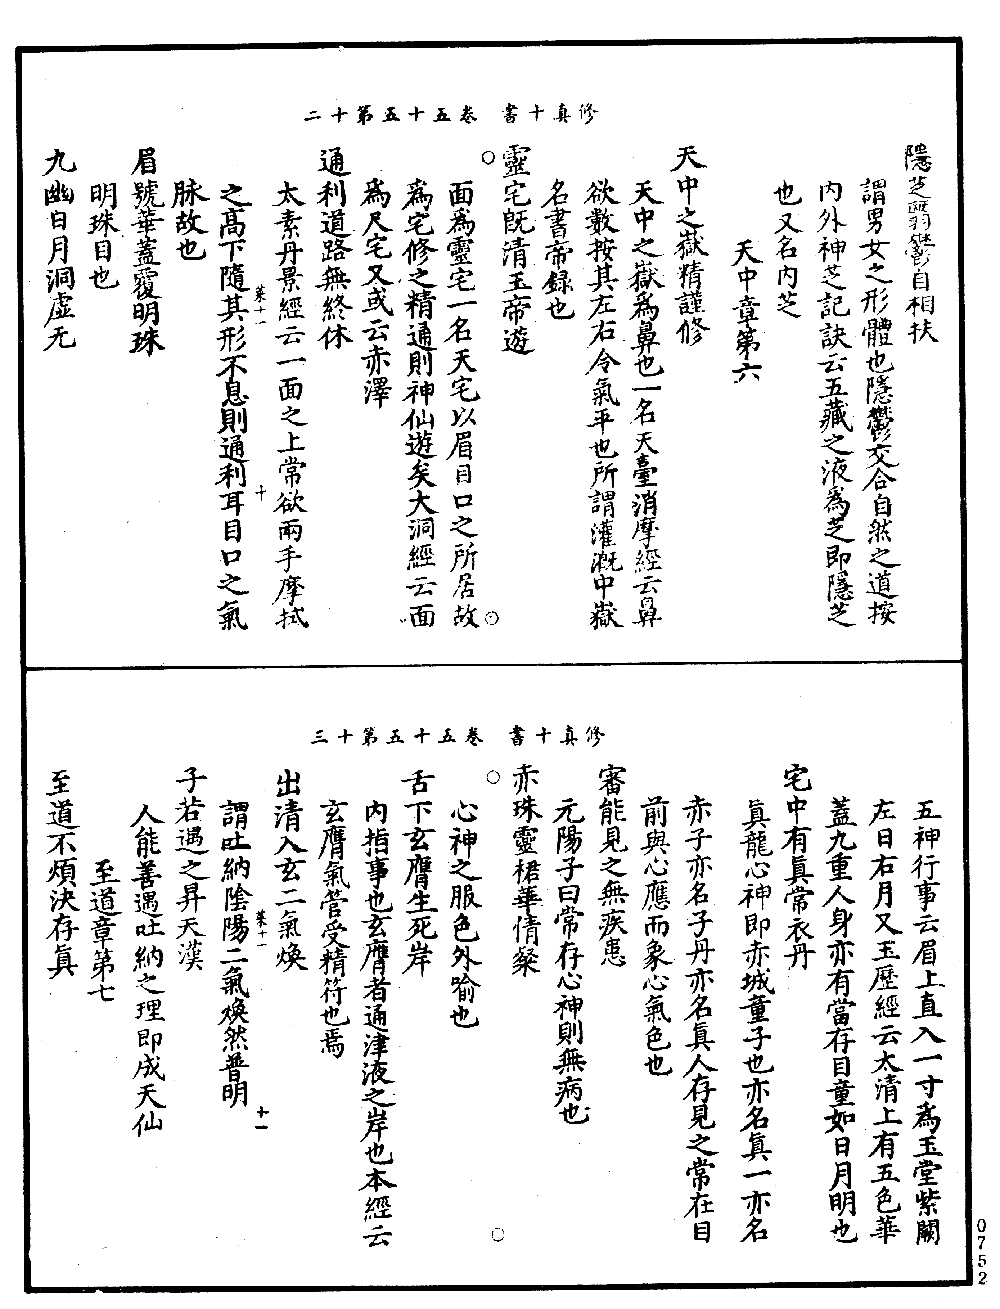 修真十書　卷五十五第十二
隱芝翳鬱自相扶
謂男女之形體也隱鬱交合自然之道按
內外神芝記訣云五藏之液爲芝即隱芝
也又名內芝
天中章第六
天中之嶽精謹修
天中之嶽爲鼻也一名天臺消摩經云鼻
欲數按其左右令氣平也所謂灌溉中嶽
名書帝録也
靈宅旣清玉帝遊
面爲靈宅一名天宅以眉目口之所居故
爲宅修之精通則神仙遊矣大洞經云面
爲尺宅又或云赤澤
通利道路無終休
太素丹景經云一面之上常欲兩手摩拭
菜十一　十
之髙下隨其形不息則通利耳目口之氣
脉故也
眉號華蓋覆明珠
明珠目也
九幽日月洞虛无
修真十書　卷五十五第十三
五神行事云眉上直入一寸爲玉堂紫闕
左日右月又玉歷經云太清上有五色華
蓋九重人身亦有當存目童如日月明也
宅中有眞常衣丹
眞龍心神即赤城童子也亦名眞一亦名
赤子亦名子丹亦名眞人存見之常在目
前與心應而象心氣色也
審能見之無疾患
元陽子曰常存心神則無病也
赤珠靈裙華倩粲
心神之服色外喻也
舌下玄膺生死岸
內指事也玄膺者通津液之岸也本經云
玄膺氣管受精符也焉
出清入玄二氣煥
菜十一　十一
謂吐納陰陽二氣煥然普明
子若遇之昇天漢
人能善遇吐納之理即成天仙
至道章第七
至道不煩決存眞
0752